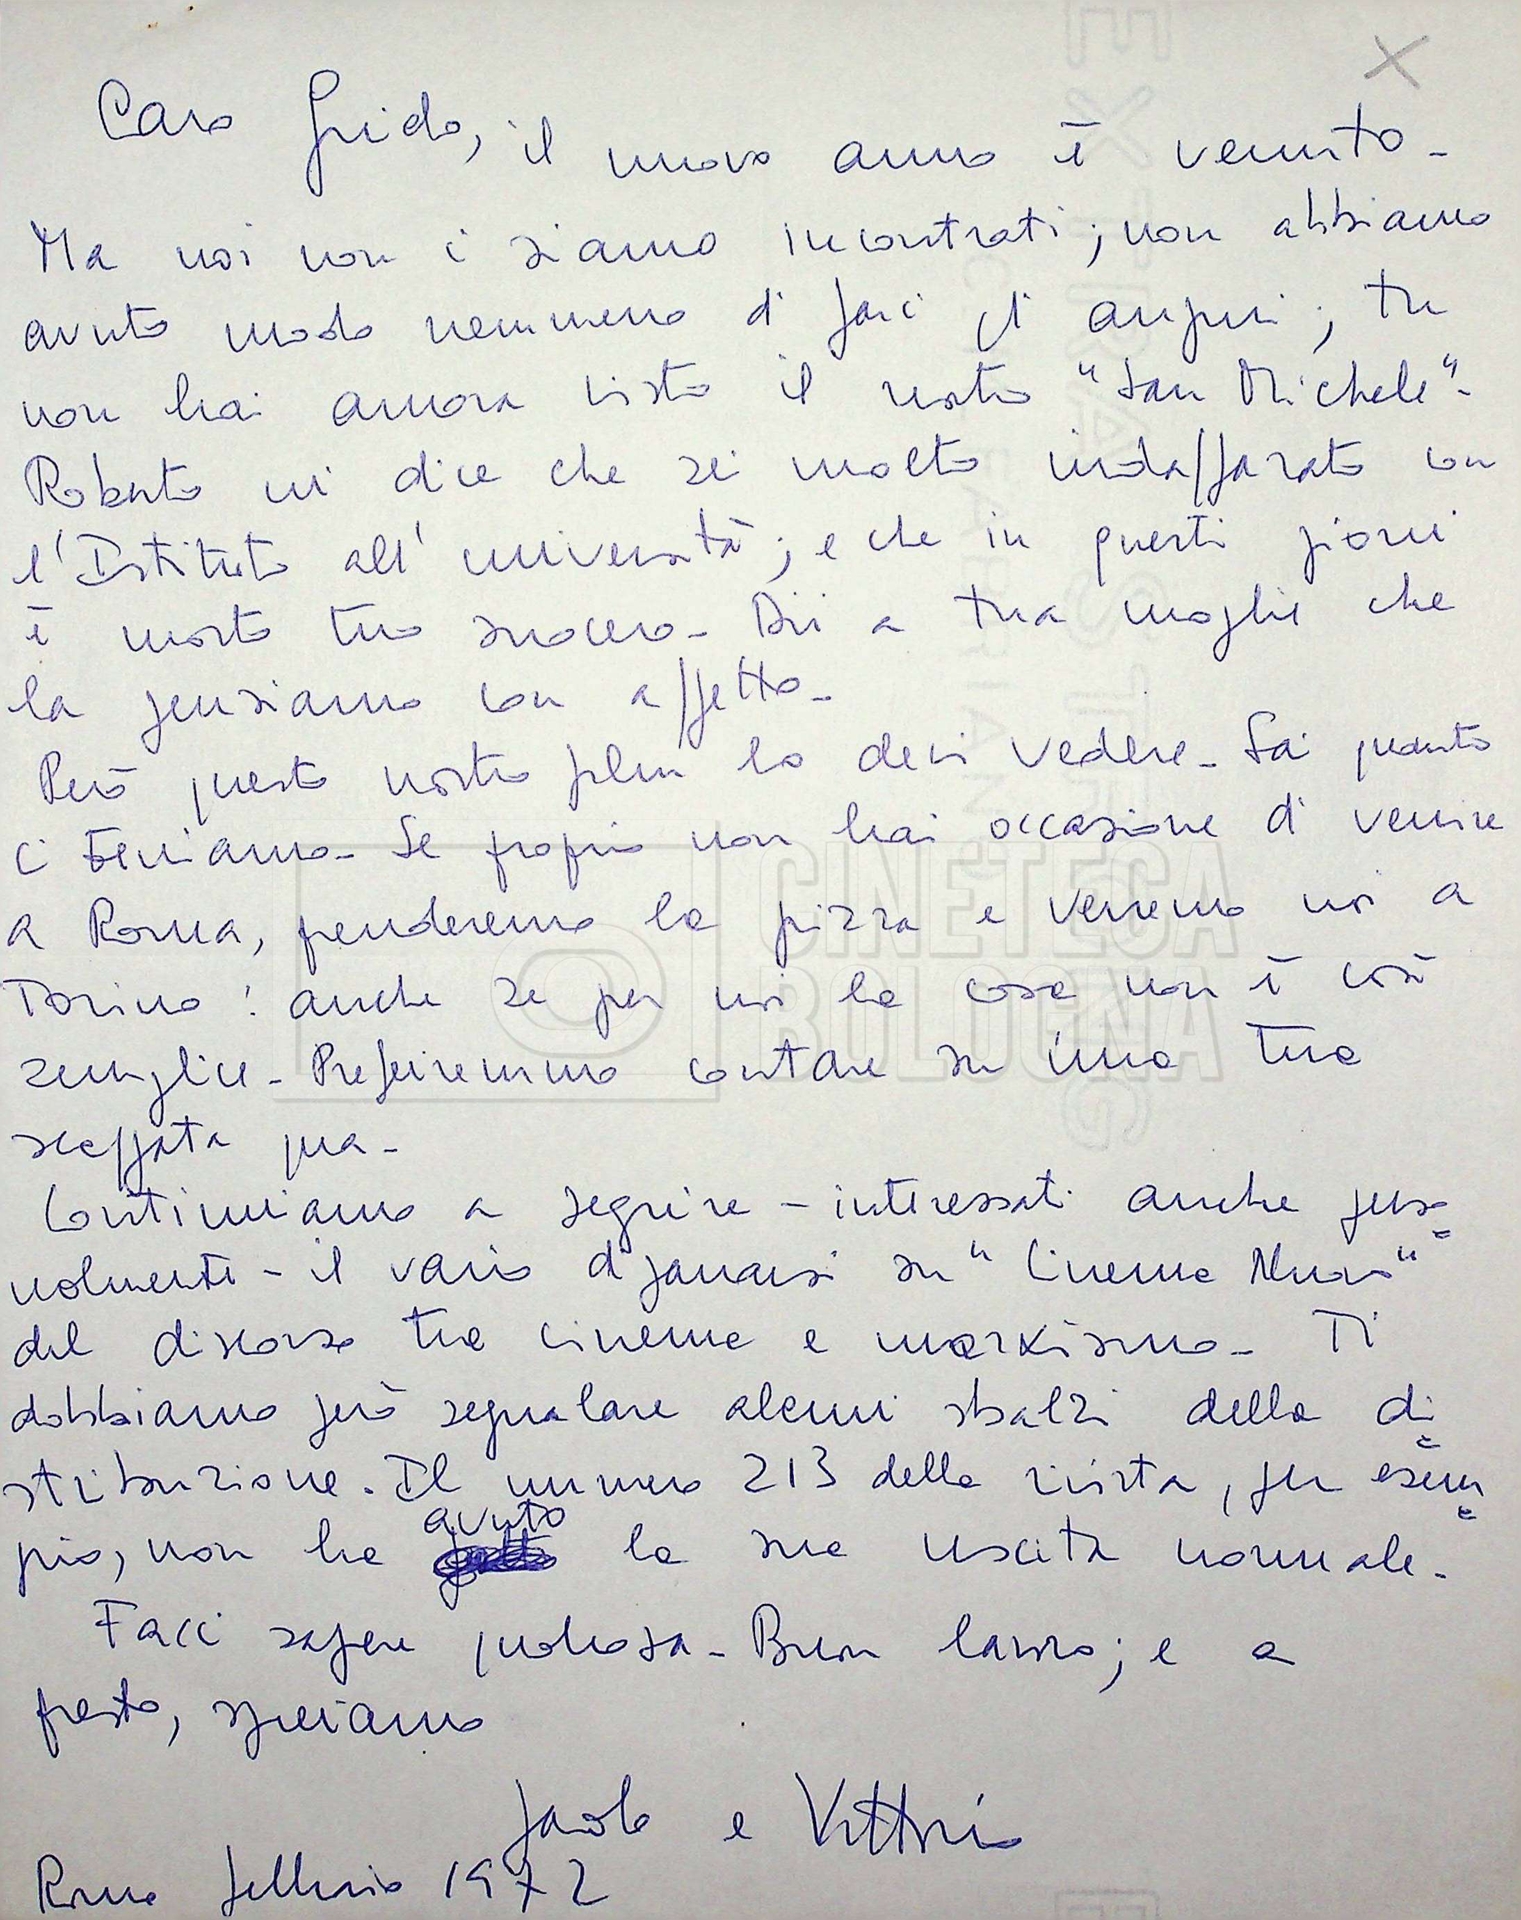 Caro Guido, il nuovo anno è venuto -
Ma noi non ci siamo incontrati; non abbiamo
avuto modo nemmeno di farci gli auguri; tu
non hai ancora visto il nostro "San Michele" -
Roberto mi dice che sei molto indaffarato con
l'Istituto all'università; e che in questi giorni
è morto tuo suocero - Dii a tua moglie che
la pensiamo con affetto -
Però questo nostro film lo devi vedere - Sai quanto
ci teniamo - Se proprio non hai occasione di venire
a Roma, prenderemo la pizza e verremo noi a
Torino! anche se per noi la cosa non è così
semplice - Preferiremmo contare su una tua
scappata qua -
Continuiamo a seguire - interessati anche perso=
nalmente - il vario dipanarsi su "Cinema Nuovo"
del discorso tra cinema e marxismo - Ti
dobbiamo però segnalare alcuni sbalzi della di=
stribuzione. Il numero 213 della rivista, per esem=
pio, non ha avuto la sua uscita normale -
Facci sapere qualcosa - Buon lavoro; e a
presto, speriamo
Paolo e Vittorio
Roma febbraio 1972
CINETECA
BOLOGNA
EXTRA STRONG